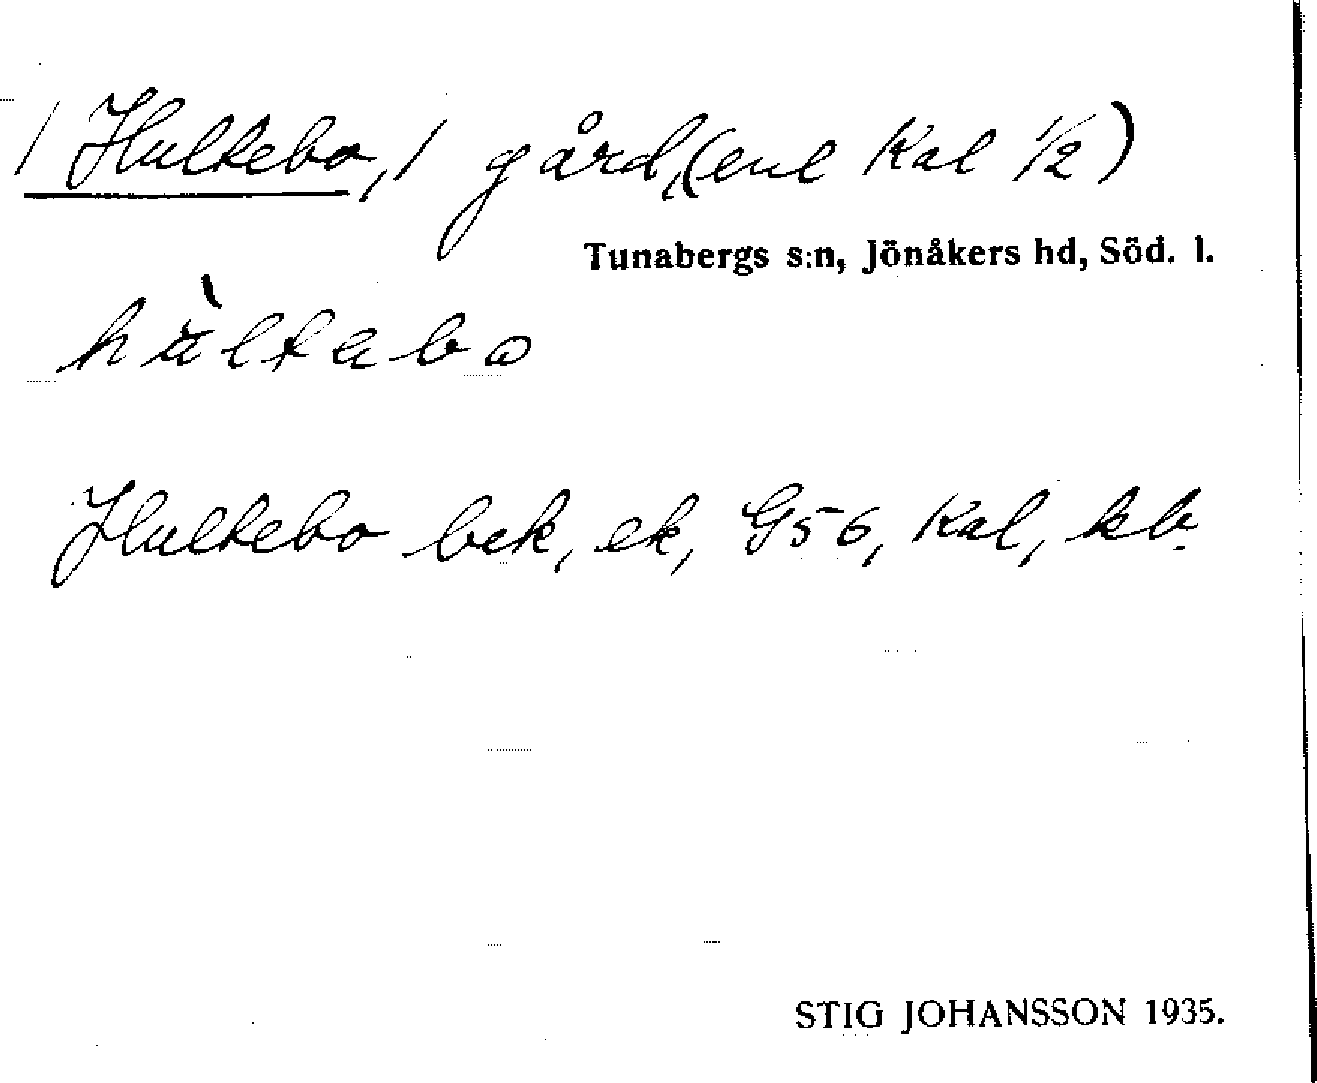 / Hultebo, / gård, (enl Kal 1/2)
Tunabergs s:n, Jönåkers hd, Söd. l.
hùltebo
Hultebo bek, ek, G56, Kal, kb.
STIG JOHANSSON 1935.